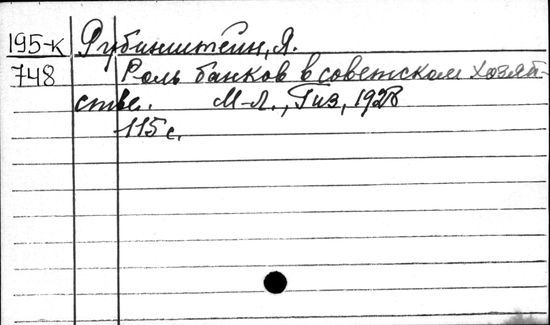 195-к Рубинштейн, Я.
748 Роль банков в советском хозяй-
стве. М-Л., Гиз, 1928
115 с.